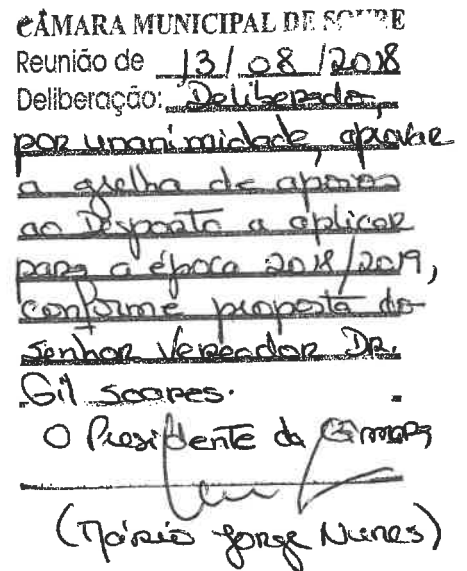 CÂMARA MUNICIPAL DE SOURE
Reunião de 13/08/2018
Deliberação: Deliberado,
por unanimidade, aprovar
a grelha de apoios
ao Desporto a aplicar
para a época 2018/2019,
conforme proposta do
Senhor Vereador Dr.
Gil Soares.
O Presidente da Câmara
(Mário Jorge Nunes)